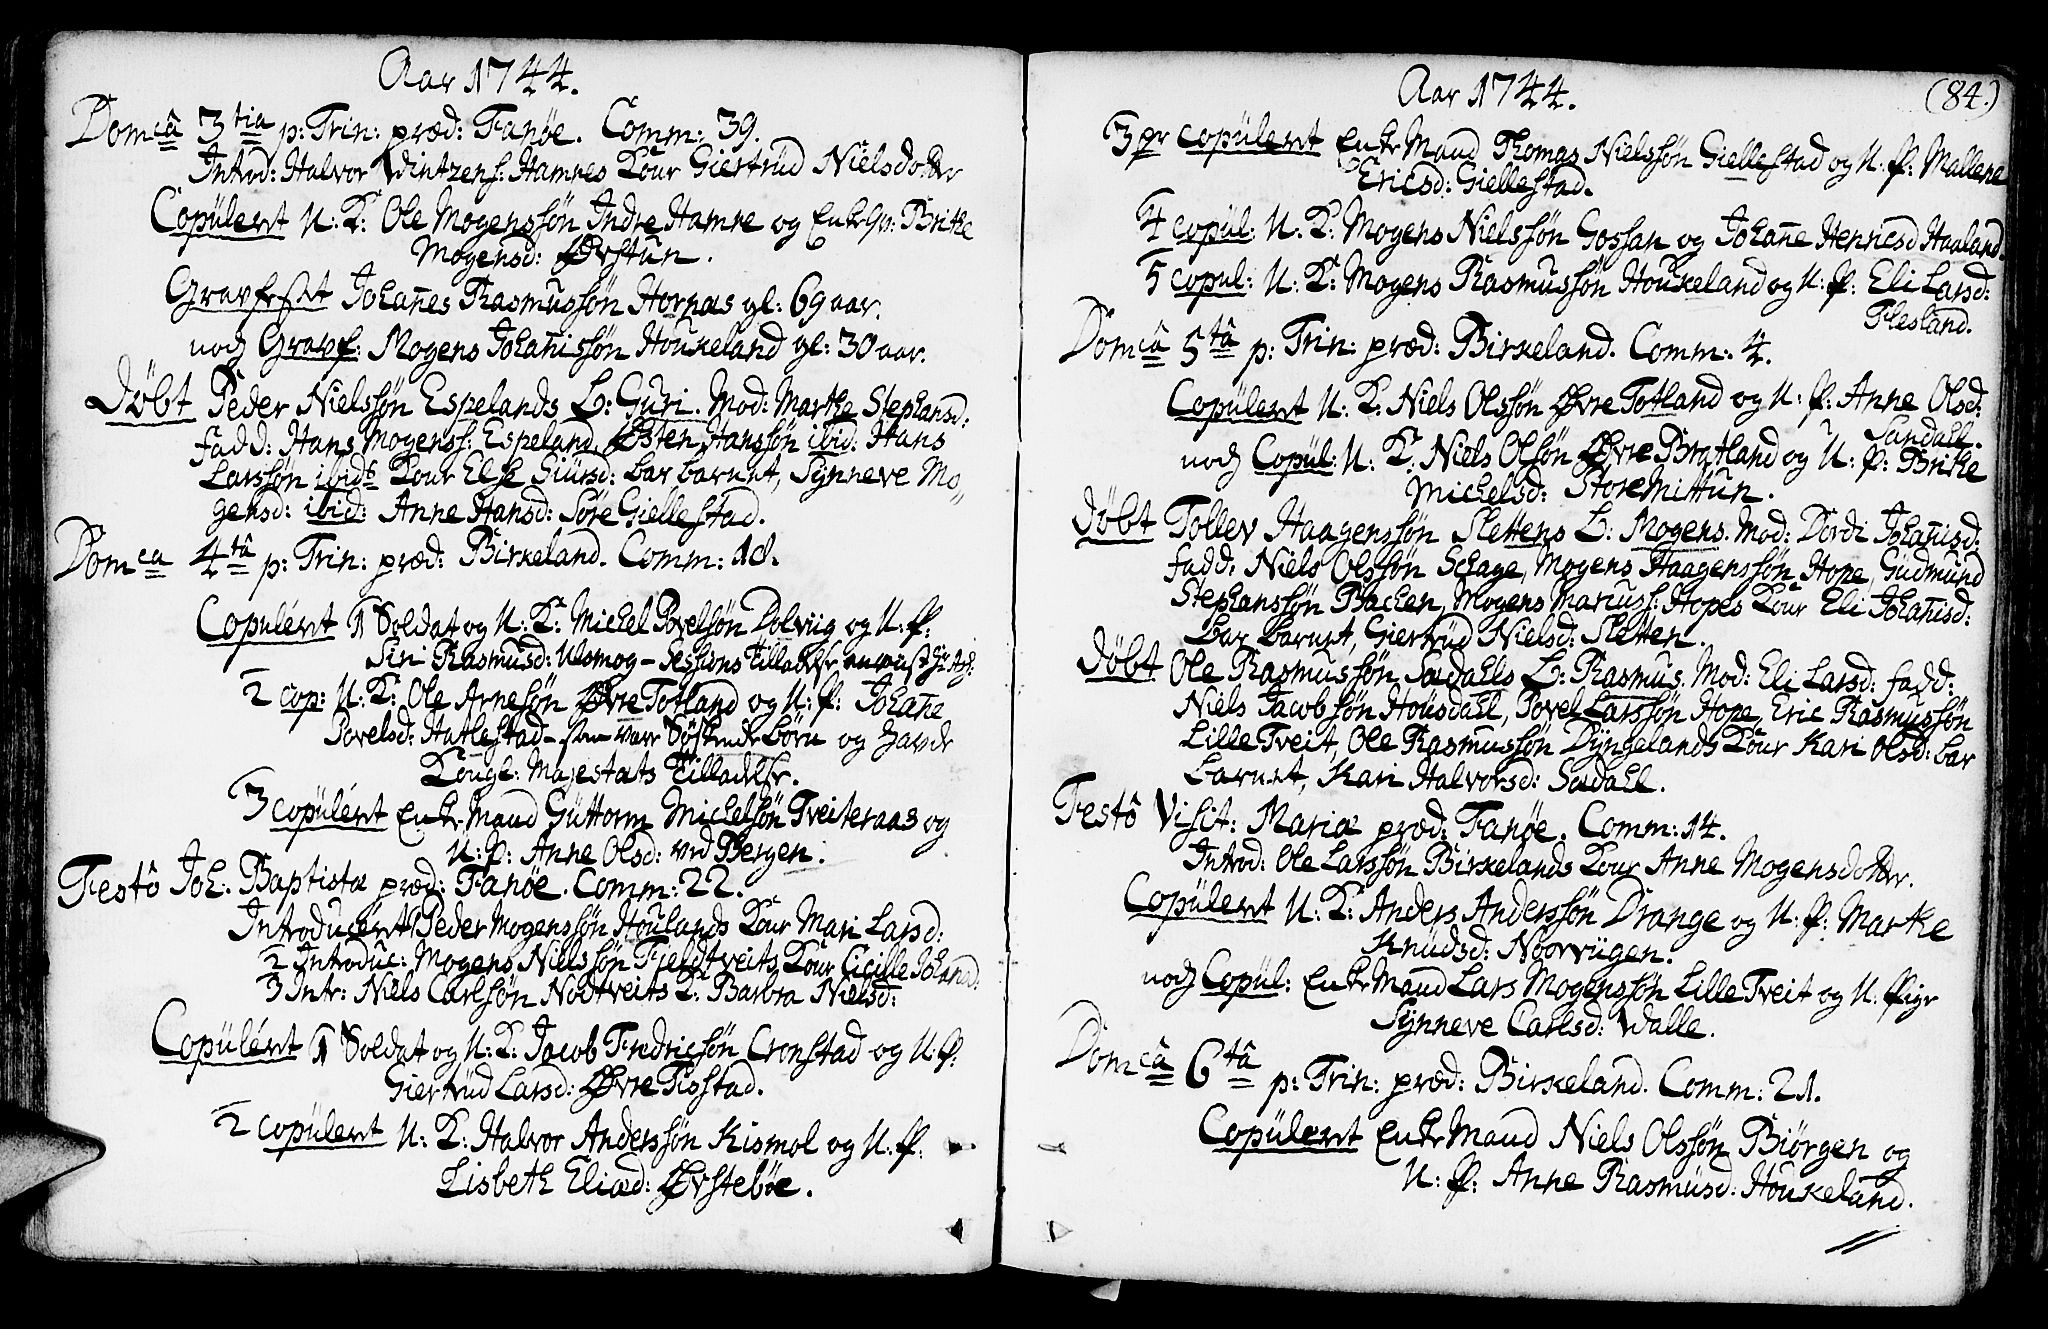 Aar 1744.
Domcâ 3tia p: Trin: præd: Fanøe. Comm: 39.
Introd: Halvor Vintzens: Hamres Kone Giertrud Nielsdotter
Copulert U: K: Ole Mogenssøn Indre Hamre og Enke Qv: Brithe
Mogensd: Ørstun.
Gravfestet Johañes Rasmussøn Hornæs gl: 69 aar.
noch Gravf: Mogens Johañissøn Houkeland gl: 30 aar.
Døbt Peder Nielssøn Espelands B: Guri. Mod: Marthe Stephansd:
fadd: Hans Mogens: Espeland, Østen Hanssøn ibid: Hans
Larssøn ibids Kone Else Giursd: bar barnet, Synneve Mo-
gensd: ibid: Anne Hansd: Søre Giellestad.
Domca 4tâ p: Trin: præd: Birkeland. Comm: 18.
Copulert 1 Soldat og U: K: Michel Povelsøn Dolviig og U: P:
Siri Rasmusd: Ulsmog - Sessions Tilladelse
2 cop: U: K: Ole Arnesøn Øvre Totland og U: P: Johañe
Povelsd: Hatlestad - som vare Søskende børn og havde
Kongl: Majestæts Tilladelse.
3 copulert Enke Mand Guttorm Michelsøn Tveiteraas og
U: P: Anne Olsd: ved Bergen.
Festô Joh: Baptistæ præd: Fanøe. Comm: 22.
Introducert 1 Peder Mogenssøn Houlands Kone Mari Larsd:
2 Introduc: Mogens Nielssøn Fieldtveits Kone Cicille Johansd:
3 Intr: Niels Carlsøn Nodtveits K: Barbra Nielsd:
Copulert 1 Soldat og U: K: Jacob Fredricsøn Cronstad og U: P:
Giertrud Larsd: Øvre Tisstad.
2 copulert U: K: Halvor Anderssøn Kismol og U: P:
Lisbeth Eliæd: Ørstebøe.
Aar 1744. (84.)
3 pr copulert Enke Mand Thomas Nielssøn Giellestad og U: P: Mallene
Ericsd: Giellestad.
4 copul: U: K: Mogens Nielssøn Gossan og Johañe Henricsd Haaland.
5 copul: U: K: Mogens Rasmussøn Houkeland og U: P: Eli Larsd:
Flesland.
Domcâ 5tâ p: Trin: præd: Birkeland. Comm: 4.
Copulert U: K: Niels Olssøn Øvre Totland og U: P: Anne Olsd:
Sandall.
noch Copul: U: K: Niels Olsøn Øvre Bratland og U: P: Brithe
Michelsd: Store Mittun.
Døbt Tollev Haagenssøn Slettens B: Mogens. Mod: Dordi Johañisd:
fadd: Niels Olssøn Schage, Mogens Haagenssøn Hope, Gudmund
Stephanssøn Bachen, Mogens Mariuss: Hopes Kone Eli Johañisd:
bar barnet, Giertrud Nielsd: Sletten.
Døbt Ole Rasmussøn Sædahls B: Rasmus. Mod: Eli Larsd: fadd:
Niels Jacobsøn Housdahl, Povel Larssøn Hope, Eric Rasmussøn
Lille Tveit, Ole Rasmussøn Dyngelands Kone Kari Olsd: bar
barnet, Kari Halvorsd: Sædahl.
Festô Visit: Mariæ præd: Fanøe. Comm: 14.
Introd: Ole Larssøn Birkelands Kone Anne Mogensdotter.
Copulert U: K: Anders Anderssøn Drange og U: P: Marthe
Knudsd: Noorviigen.
noch Copul: Enke Mand Lars Mogenssøn Lille Tveit og U: Pige
Synneve Carlsd: Walle.
Domcâ 6tâ p: Trin: præd: Birkeland. Comm: 21.
Copulert Enke Mand Niels Olssøn Biørgen og
U: P: Anne Rasmusd: Houkeland.